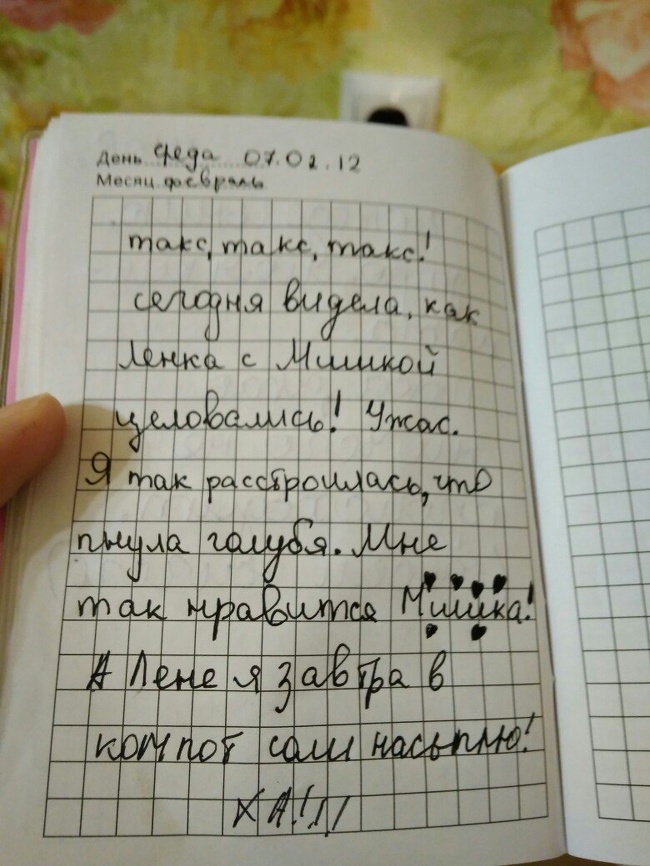 День среда 07.02.12
Месяц февраль
такс, такс, такс!
сегодня видела, как
Ленка с Мишкой
целовались! Ужас.
Я так расстроилась, что
пнула голубя. Мне
так нравится Мишка!
А Лене я завтра в
компот соли насыплю!
ХА!!!